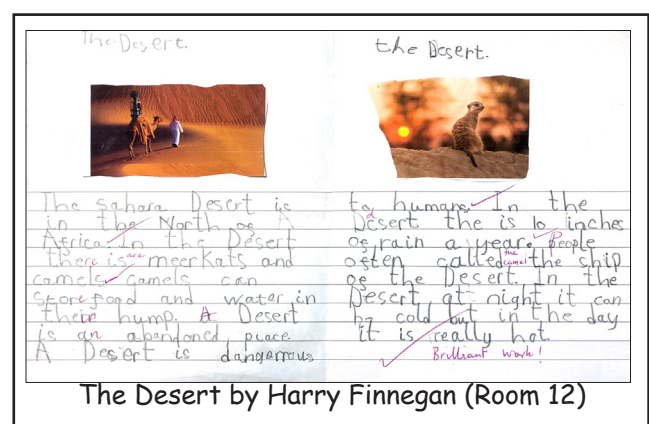 The Desert.
The sahara Desert is
in the North of A
Africa. In the Desert
there is are meerkats and
camels. camels can
store food and water in
their hump. A Desert
is an abandoned place.
A Desert is dangarrous
the Desert.
to humans. In the
Desert the is 10 inches
of rain a year. People
often called the camel the ship
of the Desert. In the
Desert at night it can
be cold but in the day
it is really hot.
Brilliant work!
The Desert by Harry Finnegan (Room 12)